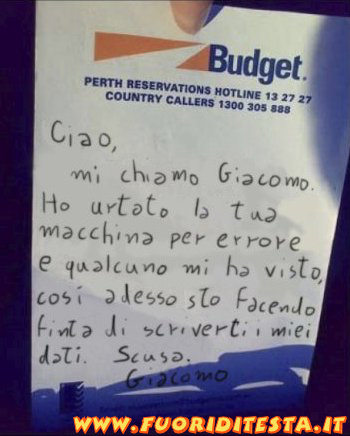 Budget.
PERTH RESERVATIONS HOTLINE 13 27 27
COUNTRY CALLERS 1300 305 888
Ciao,
mi chiamo Giacomo.
Ho urtato la tua
macchina per errore
e qualcuno mi ha visto,
così adesso sto facendo
finta di scriverti i miei
dati. Scusa.
Giacomo
WWW.FUORIDITESTA.IT